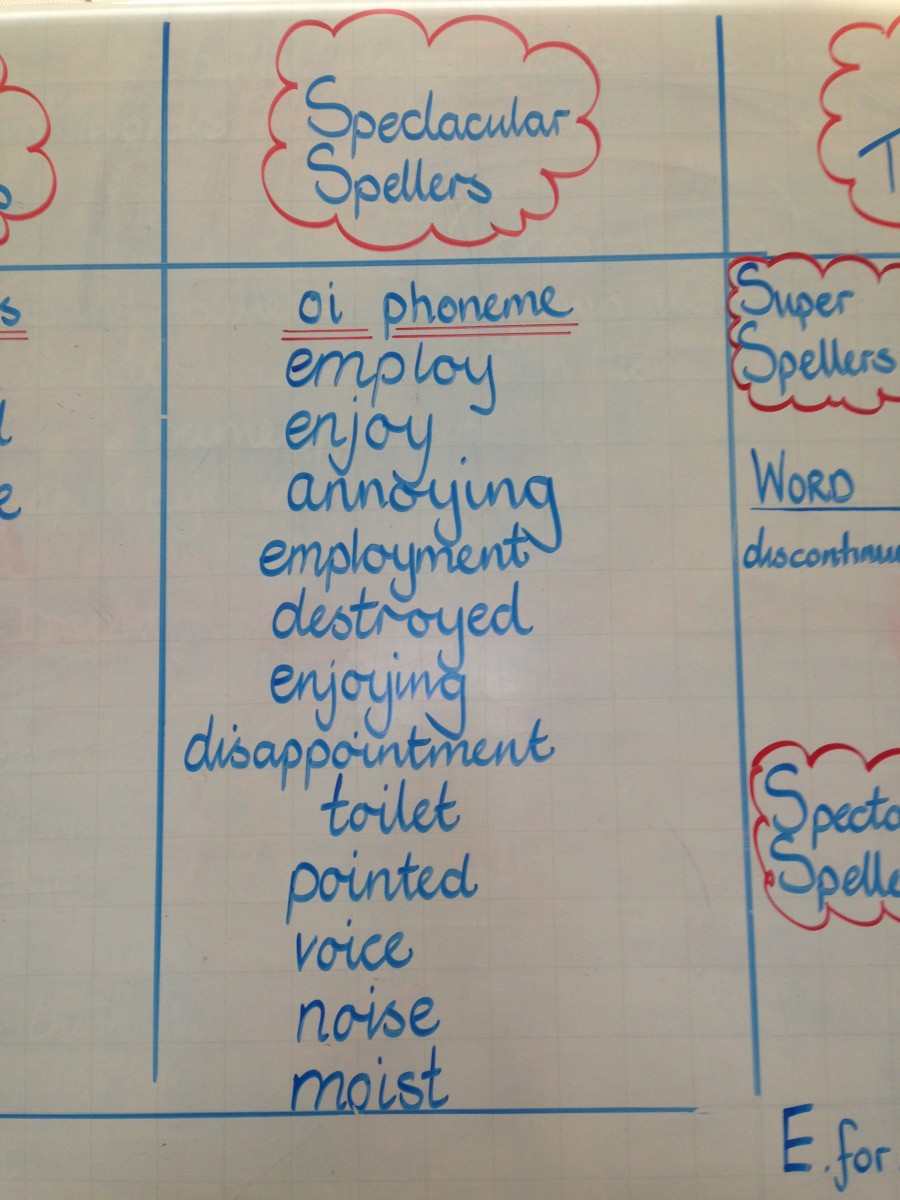 Spectacular
Spellers
oi phoneme
employ
enjoy
annoying
employment
destroyed
enjoying
disappointment
toilet
pointed
voice
noise
moist
s
e
Super
Spellers
WORD
discontinu
Specta
Spelle
E.for